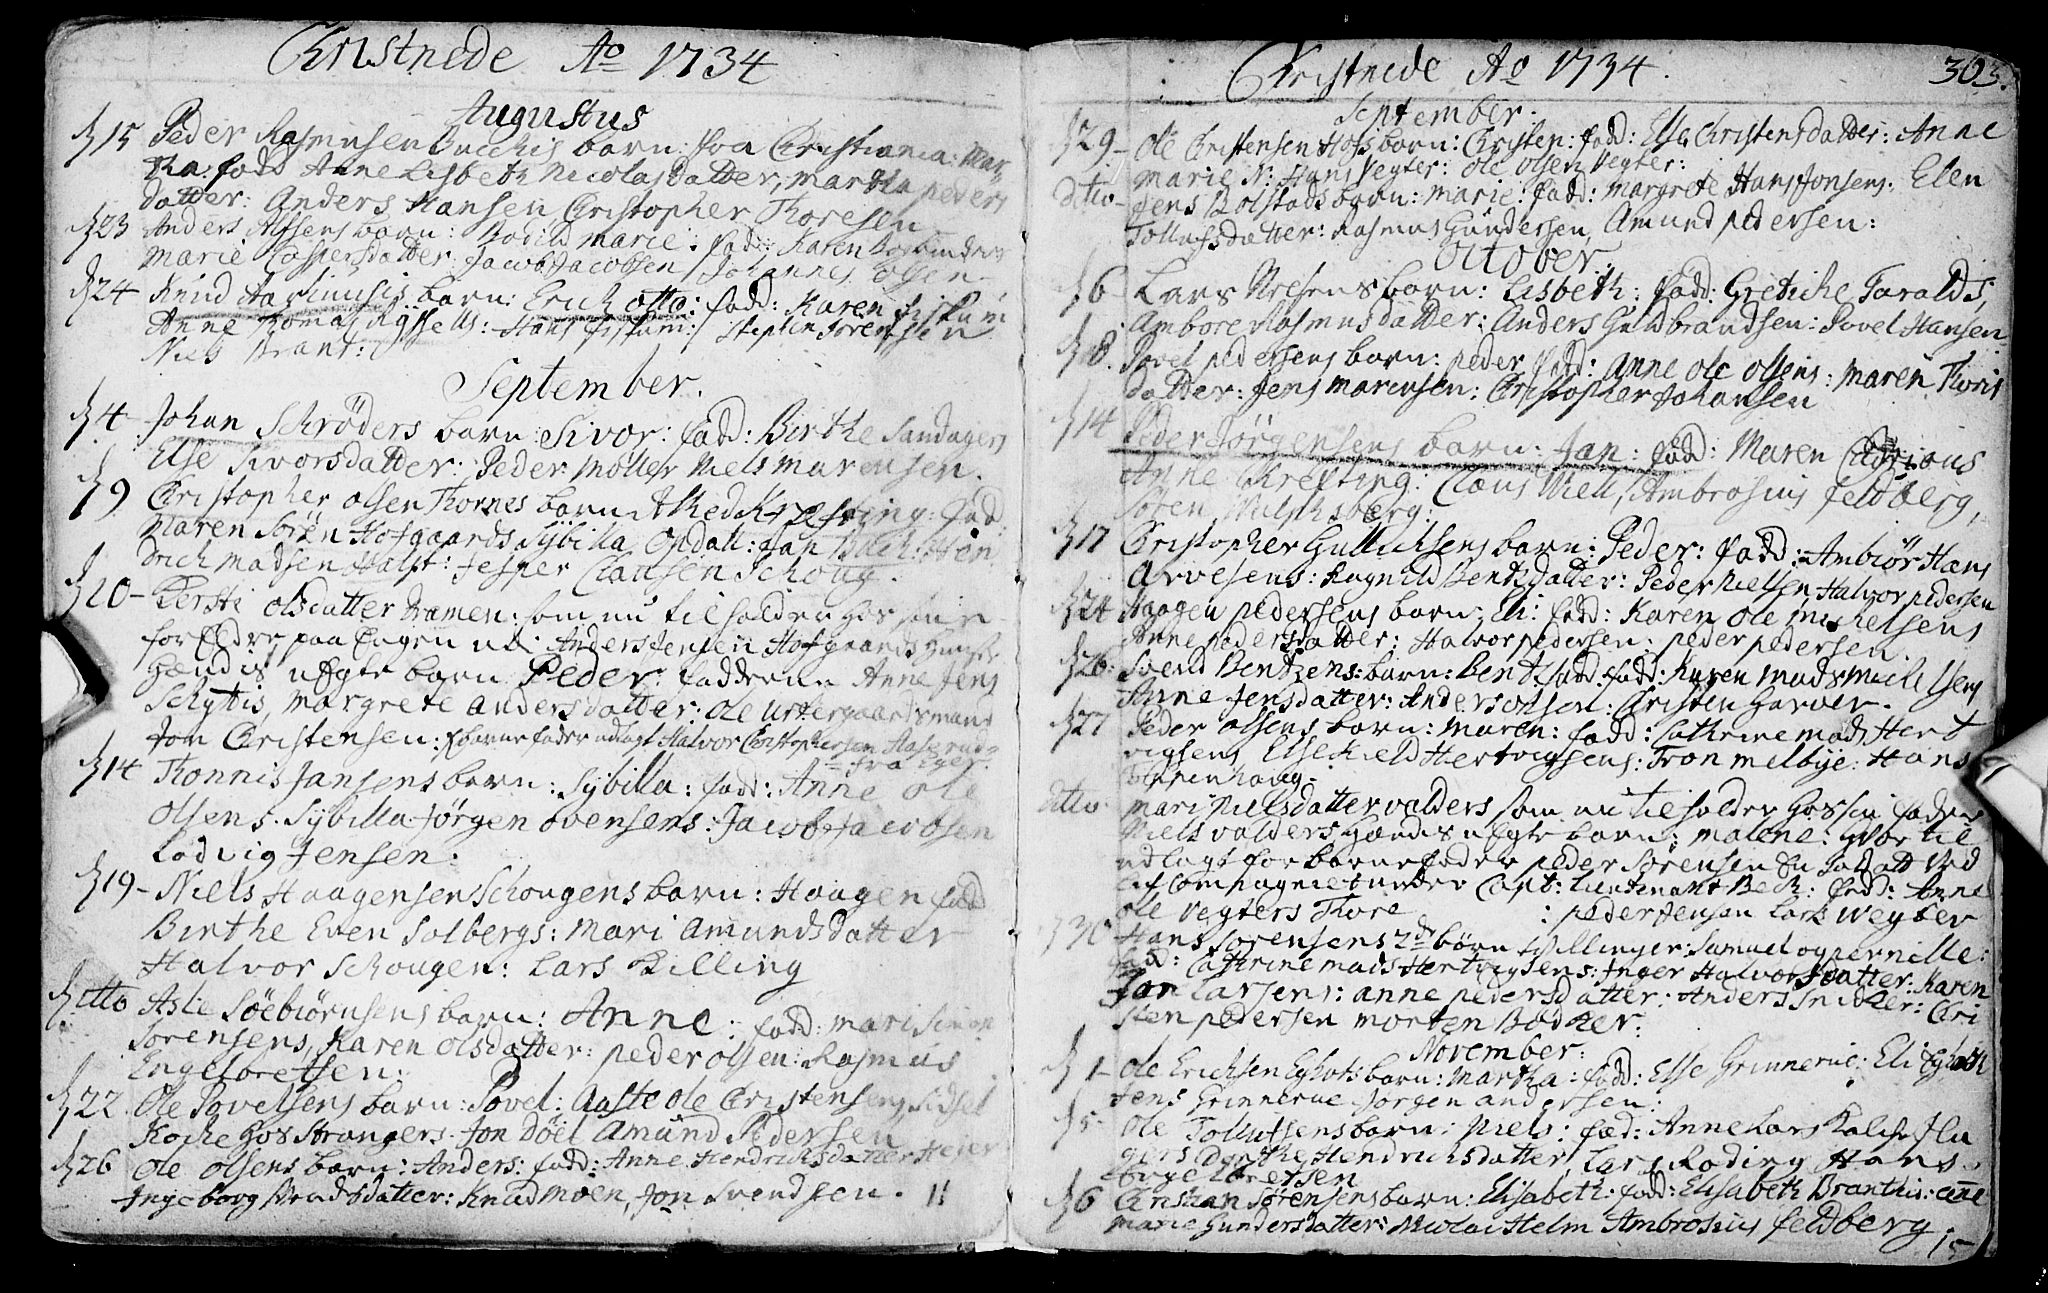 Christnede Ao 1734
Augustus
15 Peder Rasmusen barn: fra Christiania: Mar-
tha: fadd Anne Lisbeth Nicolasdatter, Martha peders
datter: Anders Hansen, Christopher Thoresen
23 Anders Alfsens barn: Bodild Marie: fadd: Karen
Marie Caspersdatter: Jacob Jacobsen, Johannes Olsen
24 Knud barn: Erich Otto: fadd: Karen Fiskum
Anne Thomas: Hans Fiskum: Stephen Sørensen
Niels Brant:
September.
4 Johan Schrøders barn: Sivor: fadd: Birthe Sandagers
Else Sivorsdatter: Peder Møller Niels Marensen.
9 Christopher Olsen Thornes barn fadd:
Maren Søren Hofgaards Sybilla Opdall: Jan Bach: Hen
drich Madsen Halft: Jesper Clausen Schoug.
20 - Kersti Olsdatter Dramen: som nu til holder hos sine
foreldre paa Engen ved: Anders Jensen Hofgaards
hændis uEgte barn Peder: faddrene Anne Jens
Schyttis, Margrete Andersdatter: Ole
Jon Christensen: barne fader udlagt Halvor Christophersen
fra Eger.
14 Thonnis Jansens barn: Sybilla: fadd: Anne Ole
Olsens. Sybilla Jørgen Ovensens: Jacob Jacobsen
Lodvig Jensen:
19 - Niels Haagensen Schougens barn: Haagen fadd
Birthe Even Solbergs: Mari Amundsdatter
Halvor Schougen: Lars Killing
ditto Aslie Søebiørnsens barn: Anne: fadd: Mari Simon
Sørensens, Karen Olsdatter: Peder Olsen: Rasmus
Engebretsen:
22 Ole Povelsens barn: Povel: Aaste Ole Christensens, Sidsel
Koche hos Strangers. Jon Döel Amund Pedersen
26 Ole Olsens barn: Anders: fadd: Anne Hendrichsdatter
Ingeborg Madsdatter: Knud Moen, Jon Svendsen. 11
Christnede Ao 1734.
303.
September.
29 - Ole Christensen Hofs barn: Christen: fadd: Else Christensdatter: Anne
Marie N: Hans Vegter: Ole Olsen Vegter:
ditto - Jens Bolstads barn: Marie: fadd: Margrete Hans Jonsens. Elen
Tollufsdatter: Rasmus Gundersen, Amund Pedersen:
October.
6 - Lars barn: Lisbeth: fadd: Gretiche Taralds,
Ambore Rasmusdatter: Anders Guldbrandsen: Povel Hansen
8. Povel Pedersens barn: Peder fadd: Anne Ole Olsens: Maren Thoris
datter: Jens Marensen: Christopher Johansen
14 Peder Jørgensens barn: Jan: fadd: Maren
Anne Krefting: Claus Wiell, Ambrosius Feldberg,
Søren
17 Christopher Gullichsens barn: Peder: fadd: Ambiør Hans
Arvesens: Ragnild Bentsdatter: Peder Nielsen Halvor Pedersen
24 Haagen Pedersens barn: Eli: fadd: Karen Ole Michelsens
Anne Pedersdatter: Halvor Pedersen: Peder Pedersen.
26. Svend Bentzens: barn: Bent: fadd: Karen Mads Michelsens
Anne Jensdatter: Anders Olsen: Christen Garver.
27 Peder Olsens barn: Maren: fadd: Cathrine Mads Hert
vigsens Else Kield Hertvigsens: Tron Melbye: Hans
ditto Mari Nielsdatter Valders som nu til holder hos sin fader
Niels Valders hændis uEgte barn: Malene: hvor til
udlagt for barnefader Peder Sørensen En Soldatt ved
Compagniet under Capt: Lieutenant Beck: fadd: Anne
Ole Vegters Thore : Peder Jensen Lars Wegter
30 Hans Sørensens 2de børn tvillinger: Samuel og Pernille:
fadd: Cathrine Mads Hertvigsens: Inger Halvorsdatter: Karen
Jan Larsens: Anne Pedersdatter: Anders Snidker: Chri
sten Pedersen Morten Bødker:
November:
1 - Ole Erichsen barn: Martha: fadd: Else Grinnerue: Eli
Jens Grinnerue Jørgen Andersen:
5 - Ole Tollufsens barn: Niels: fad: Anne Lars
Dorthe Hendrichsdatter, Lars Roding Hans
6 Christian Sørensens barn: Elisabeth: fadd: Elisabeth Branthis: Anne
Marie Gundersdatter: Nicolai Helm Ambrosius Feldberg
15